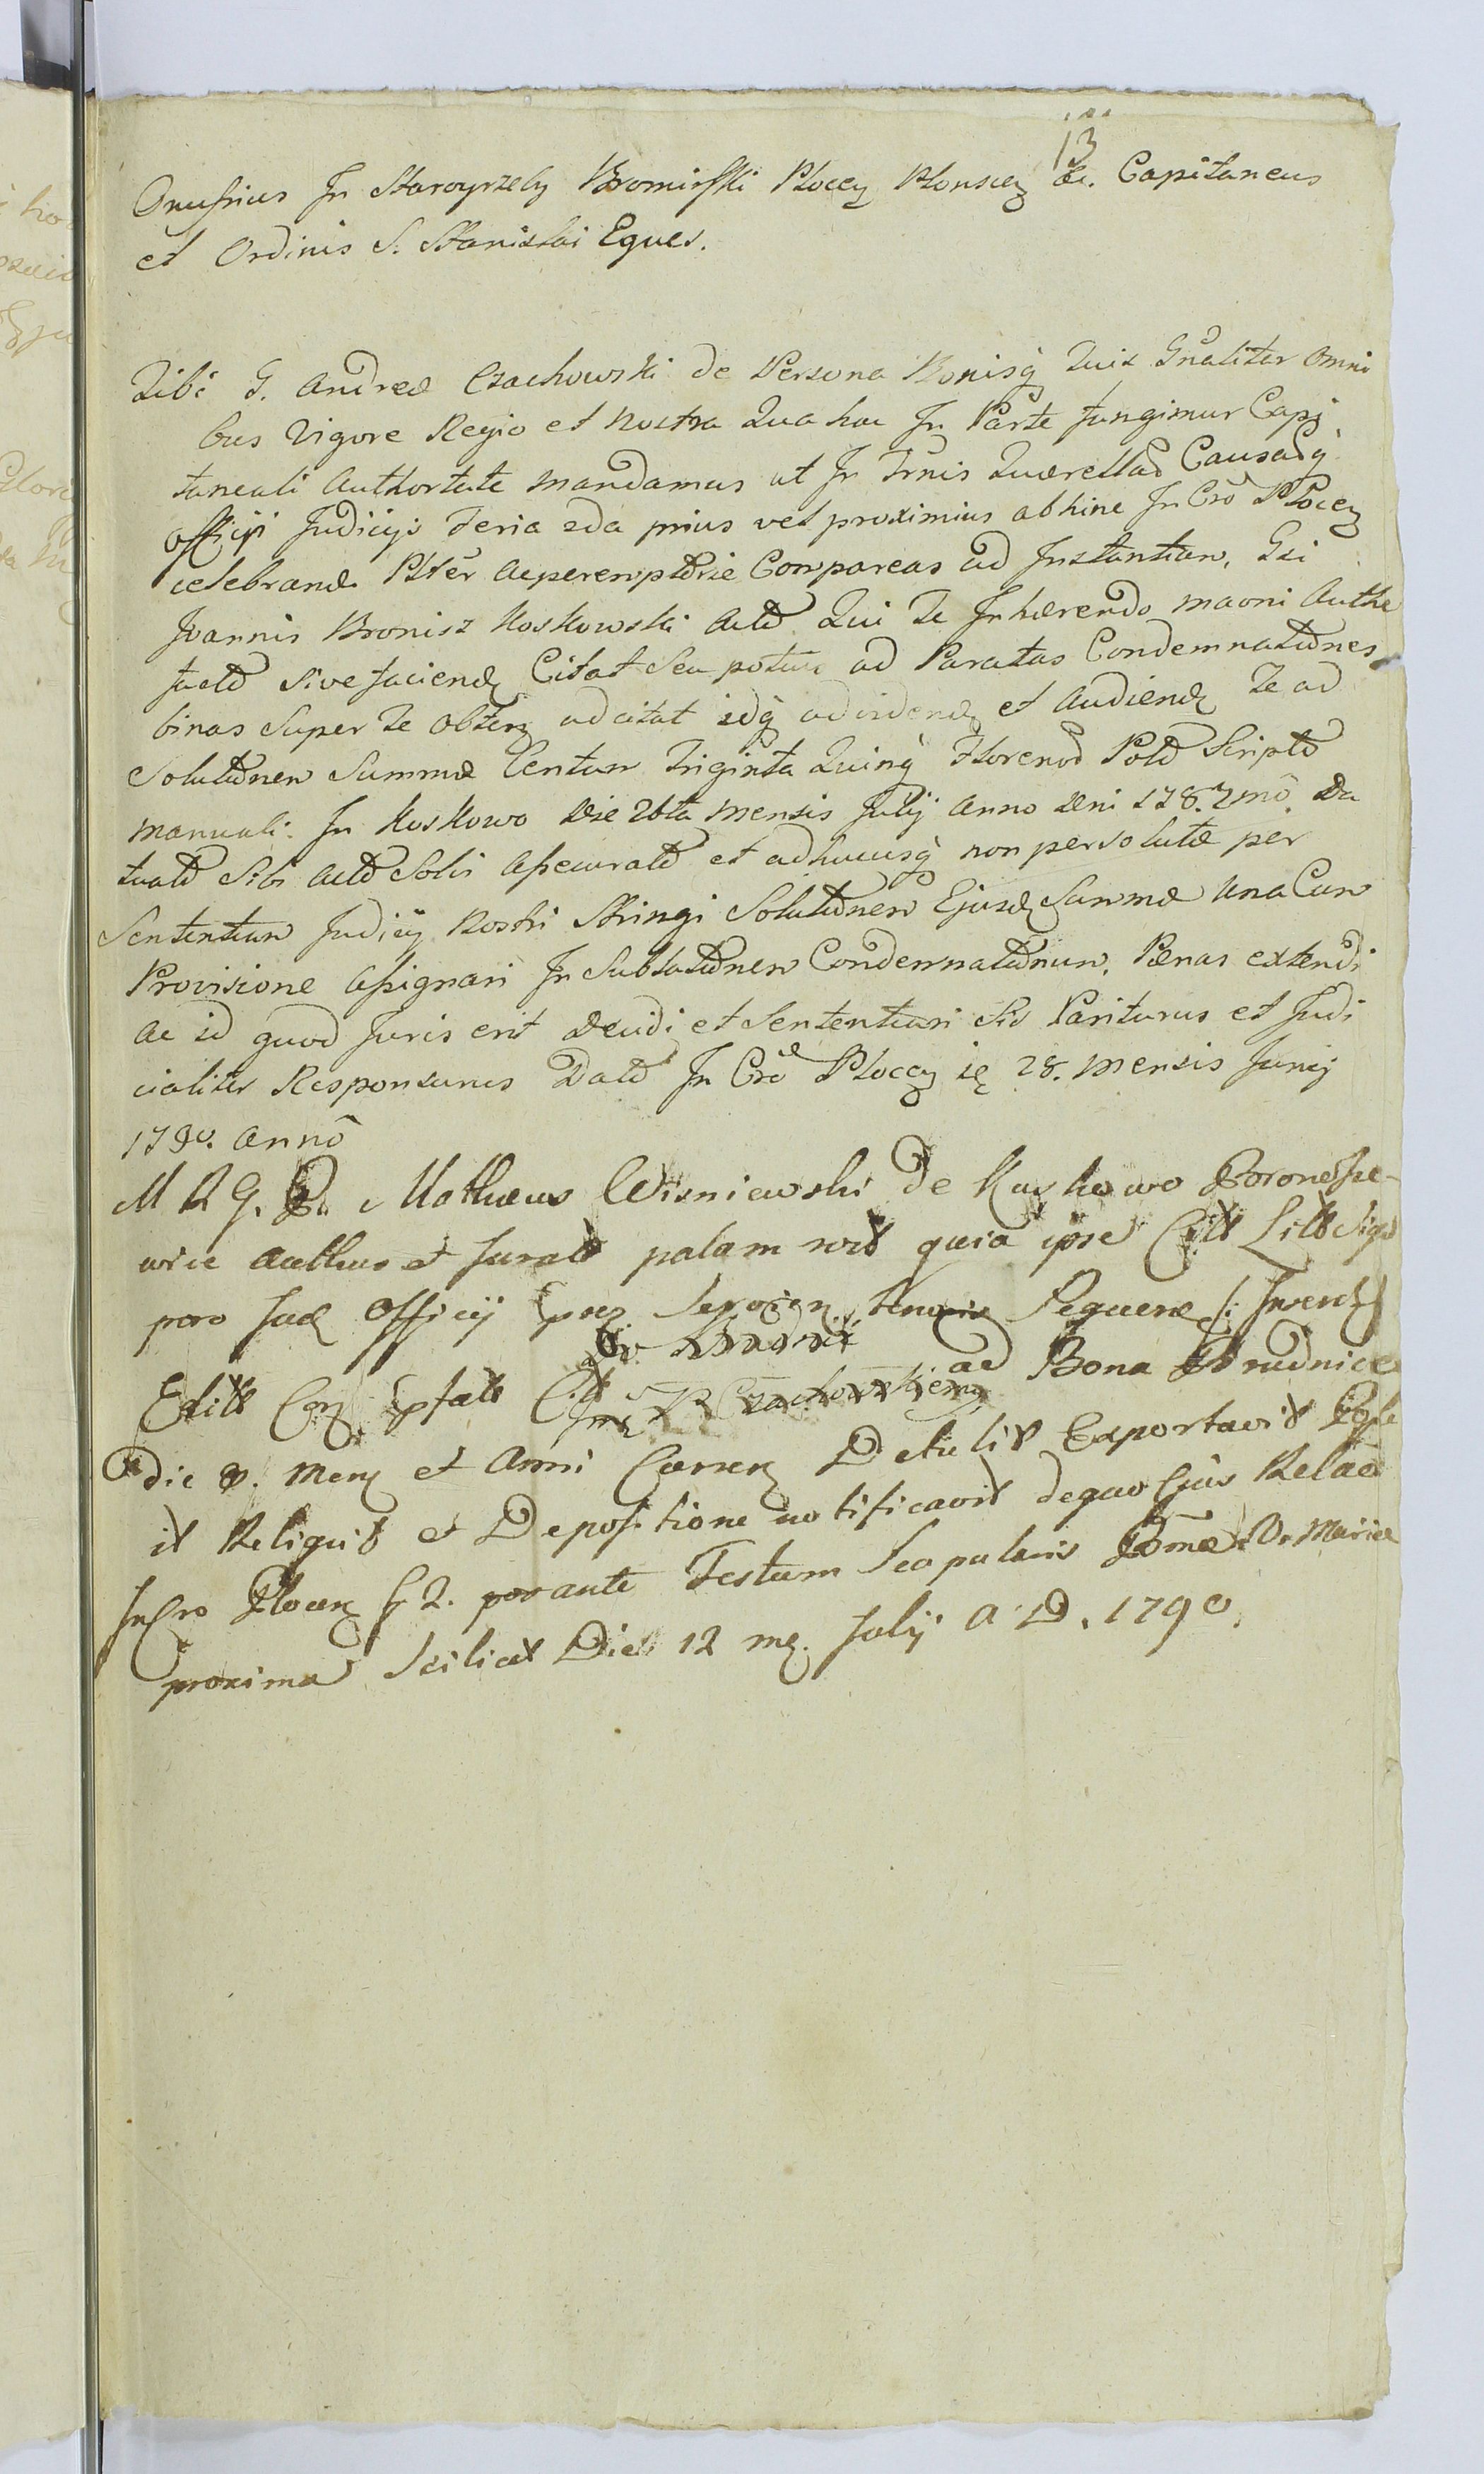 13
Onufrius In Staroyrzeby Bromirski Plocen Plonscen &c. Capitaneus
et Ordinis S. Stanislai Eques.
Tibi G. Andreæ Czachowski de Persona Bonisq Tuis Gnaliter Omni
bus Vigore Regio et Nostra Qua hac In Parte fungimur Capi
taneali Authortate Mandamus ut In Trnis Quærellad Causadq
Officii Judicijs Feria 2da prius vel proximius abhinc In Cro Plocen
celebrand. Plter Acperemptorie Compareas ad Instantiam, Gsi
Joannis Bronisz Koskowski Actd Qui Te Inhærendo maoni Authe
factd Sive faciend Citat Seu potius ad Paratas Condemnatdnes
binas Super Te Obten adcitat idq advidend et Audiend Te ad
Solutdnem Summæ Centum Triginta Quinq Florenod Pold Scriptd
Manuali. In Koskowo Die 26ta Mensis Julij Anno Dni 178.7mo. Da
tuatd Sibi Actd Solvi Assecuratd et adhucusq non persolutæ per
Sententiam Judicij Nostri Stringi Solutdnem Ejusd Summæ Una Cum
Provisione Assignari In Sublatdnem Condemnatdnum, Pænas extendi
Ac id quod Juris erit Decidi et Sententiari Sis Pariturus et Judi
cialiter Responsurus Datd In Cro Plocen 28. Mensis Junij
1790. Anno
Mathæus Wisniewski De Koskowo
Authus et Juratd palam quia ipse Citt Litt
pro Officij
Bona Trudnice
die 9. Men et Anni Curren Detulit Exportavit
it Reliquit et Depositione notificavit dequo Ejus Relao
In Cro Plocen f 2. ante Festum Scapularis Mariæ
proxima Scilicet Die 12 m. Julij A D. 1790.